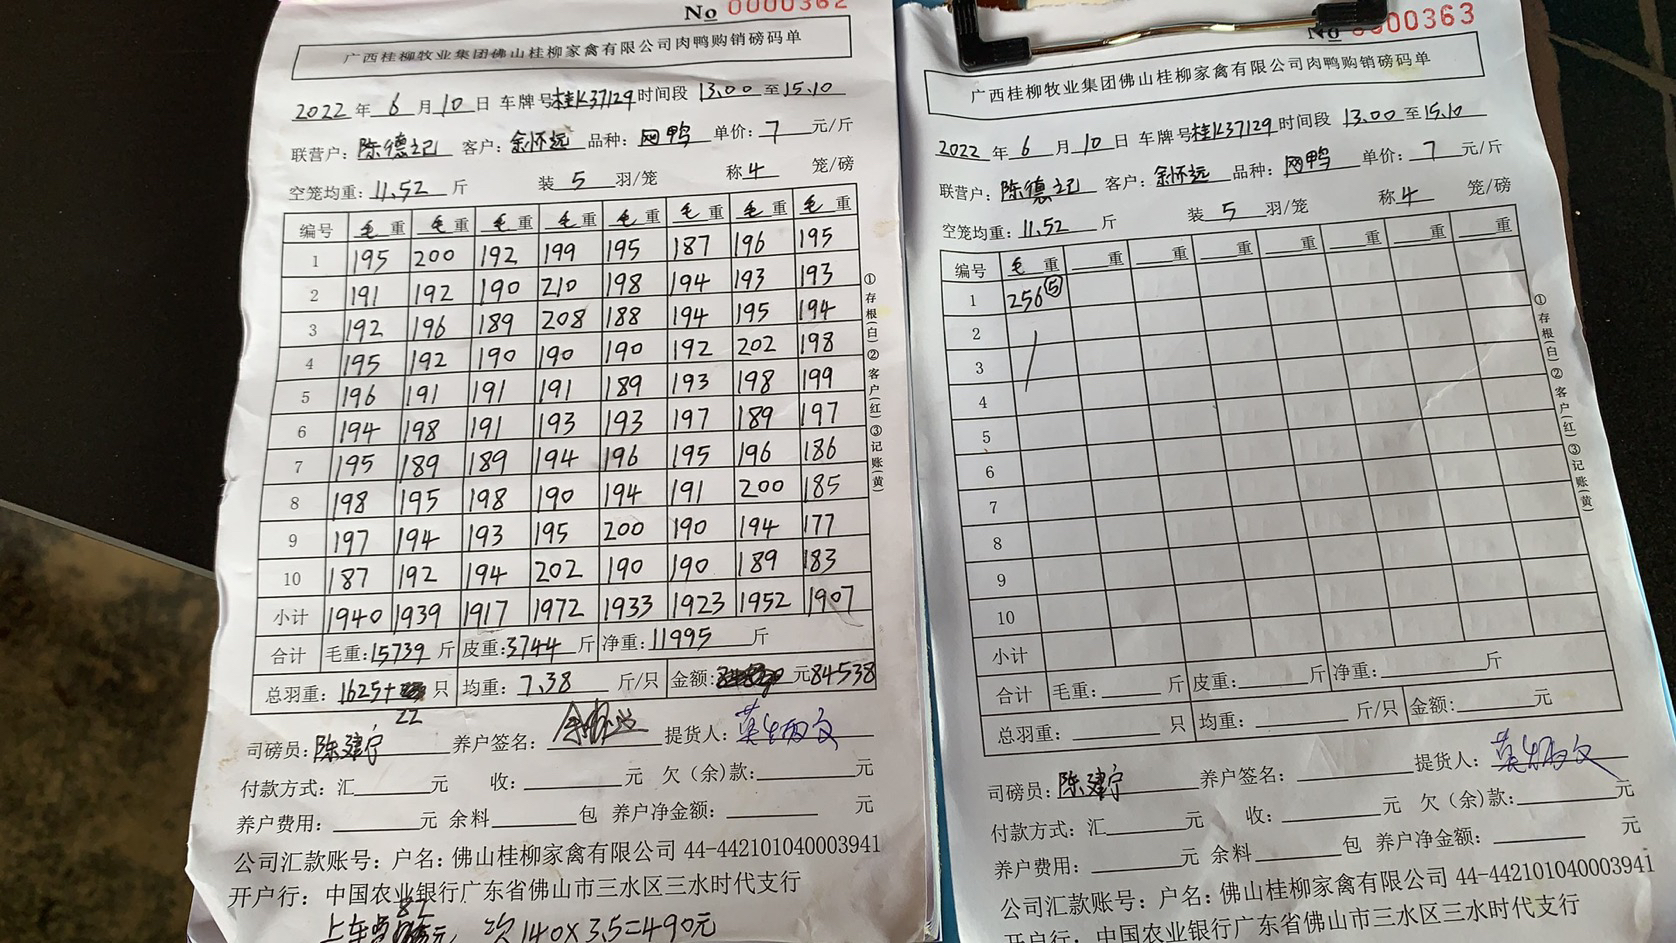 No 0000362
广西桂柳牧业集团佛山桂柳家禽有限公司肉鸭购销磅码单
2022 年 6 月 10 日 车牌号桂K37129 时间段 13.00 至 15.10
联营户：陈德记 客户：余怀远 品种：网鸭 单价：7 元/斤
空笼均重：11.52 斤 装 5 羽/笼 称 4 笼/磅
编号 毛重 毛重 毛重 毛重 毛重 毛重 毛重 毛重
1 195 200 192 199 195 187 196 195
2 191 192 190 210 198 194 193 193
3 192 196 189 208 188 194 195 194
4 195 192 190 190 190 192 202 198
5 196 191 191 191 189 193 198 199
6 194 198 191 193 193 197 189 197
7 195 189 189 194 196 195 196 186
8 198 195 198 190 194 191 200 185
9 197 194 193 195 200 190 194 177
10 187 192 194 202 190 190 189 183
小计 1940 1939 1917 1972 1933 1923 1952 1907
合计 毛重：15739 斤 皮重：3744 斤 净重：11995 斤
总羽重：1625+ 只 均重：7.38 斤/只 金额： 元84538
22
司磅员：陈建宁 养户签名： 提货人：
付款方式：汇 元 收： 元 欠（余）款： 元
养户费用： 元 余料 包 养户净金额： 元
公司汇款账号：户名：佛山桂柳家禽有限公司 44-442101040003941
开户行：中国农业银行广东省佛山市三水区三水时代支行
上车 82 元 140×3.5=490元
①存根(白)②客户(红)③记账(黄)
No 0000363
广西桂柳牧业集团佛山桂柳家禽有限公司肉鸭购销磅码单
2022 年 6 月 10 日 车牌号桂K37129 时间段 13.00 至 15.10
联营户：陈德记 客户：余怀远 品种：网鸭 单价：7 元/斤
空笼均重：11.52 斤 装 5 羽/笼 称 4 笼/磅
编号 毛重 重 重 重 重 重 重 重
1 256⑤
2
3
4
5
6
7
8
9
10
小计
合计 毛重： 斤 皮重： 斤 净重： 斤
总羽重： 只 均重： 斤/只 金额： 元
司磅员：陈建宁 养户签名： 提货人：
付款方式：汇 元 收： 元 欠（余）款： 元
养户费用： 元 余料 包 养户净金额： 元
公司汇款账号：户名：佛山桂柳家禽有限公司 44-442101040003941
开户行：中国农业银行广东省佛山市三水区三水时代支行
①存根(白)②客户(红)③记账(黄)